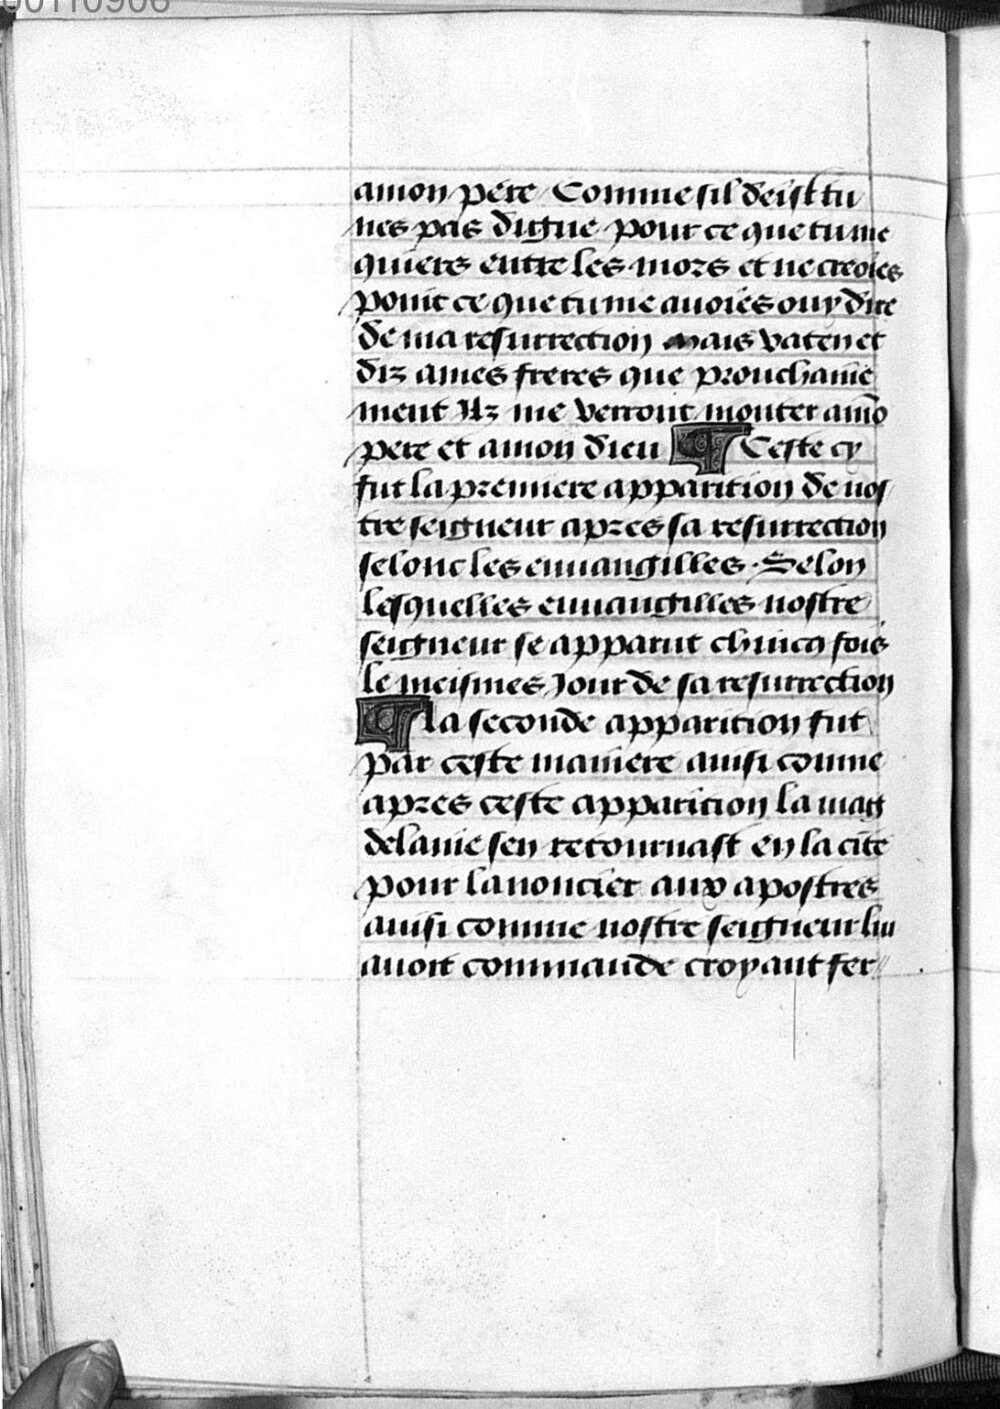 00110906
amon pere Comme sil deist tu
nes pas digne pour ce que tu me
quiers entre les mors et ne creoies
point ce que tu me auoies ouy dire
de ma resurrection mais vaten et
diz ames freres que prouchaine
ment Ilz me verront monter amō
pere et amon dieu ¶ Ceste cy
fut la premiere apparition de nos
tre seigneur apres sa resurrection
selonc les euuangilles. Selon
lesquelles euuangilles nostre
seigneur se apparut chuicq fois
le meismes Jour de sa resurrection
¶ la seconde apparition fut
par ceste maniere ainsi comme
apres ceste apparition la mag
delaine sen retournast en la cite
pour lanoncier aux apostres
ainsi comme nostre seigneur lui
auoit commande croyant fer